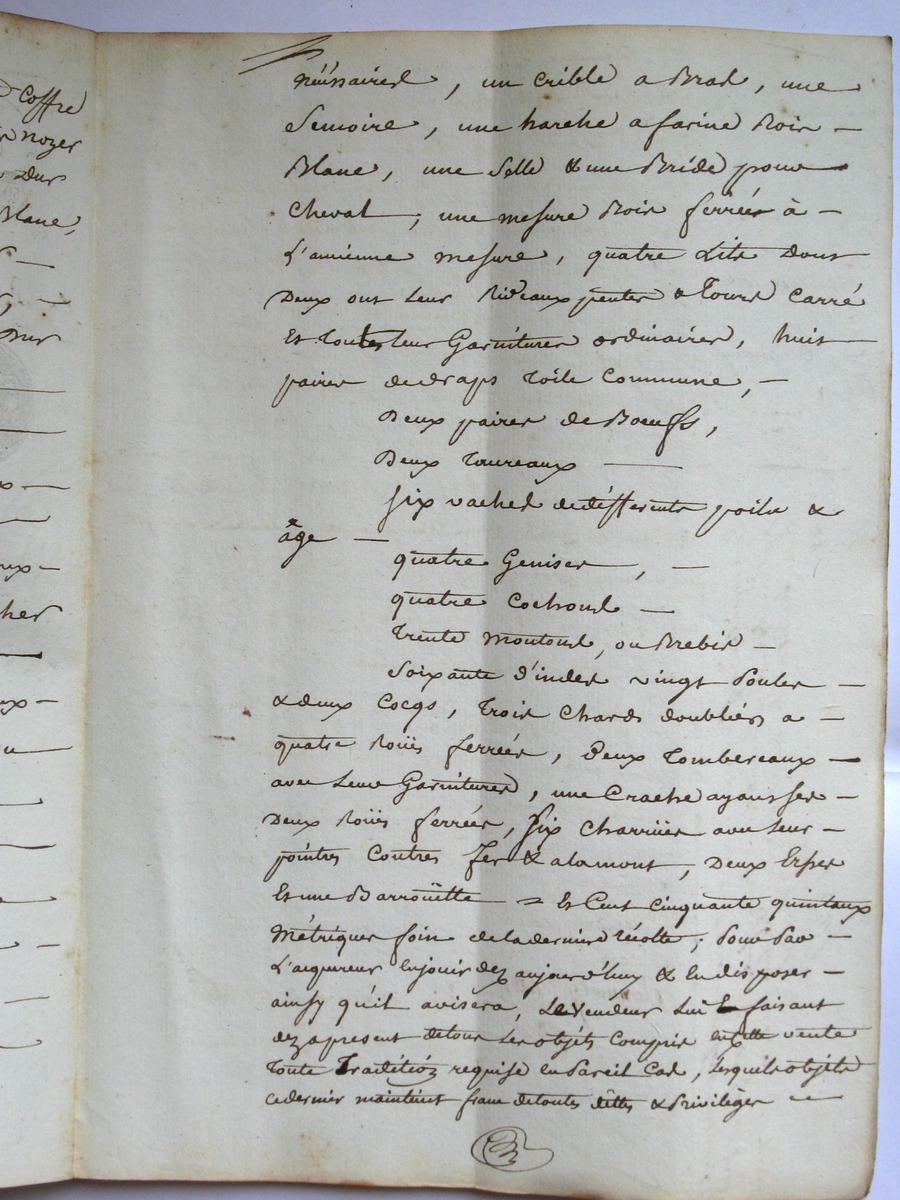 Coffre
noyer
dur
Blanc,
sur
cher
néssaires, un crible a Bras, une
Semoire, une harche a farine Bois
Blanc, une Selle & une Bride pour
Cheval, une mesure Bois ferrée à
L'anciénne mesure, quatre Lits dont
Deux ont leur Rideaux pentes & Tours Carré
Et toutes leur Garnitures ordinaires, huit
paires de draps Toile Commune,
Deux paires de Boeufs,
Deux Taureaux
Six vaches de différents poils &
âge
quatre Genises,
quatre Cochons
Trente moutons, ou Brebis
Soixante d'indes vingt Poules
& deux Cocqs, Trois Chards doubliés a
quatre Roües ferrées, Deux Tombereaux
avec leurs Garnitures, une Crache ayant ses
Deux Roües ferrées, Six Charrües avec leur
pointres Contres fer & alamont, Deux Erses
Et une Barroüette = Et Cent cinquante quintaux
Métriques foin de la derniere récolte; Pour Par
L'aequreur en jouir dez aujourd'huy & En disposer
ainsy qu'il avisera, Le Vendeur Lui faisant
dez a present de tous Les objéts Compris En Cette vente
Toute Tradition requise en Pareil Cas, Lesquels objéts
ce dernier maintient franc de toutes déttes & Privilèges